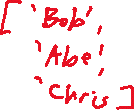 ['Bob',
'Abe',
'Chris]